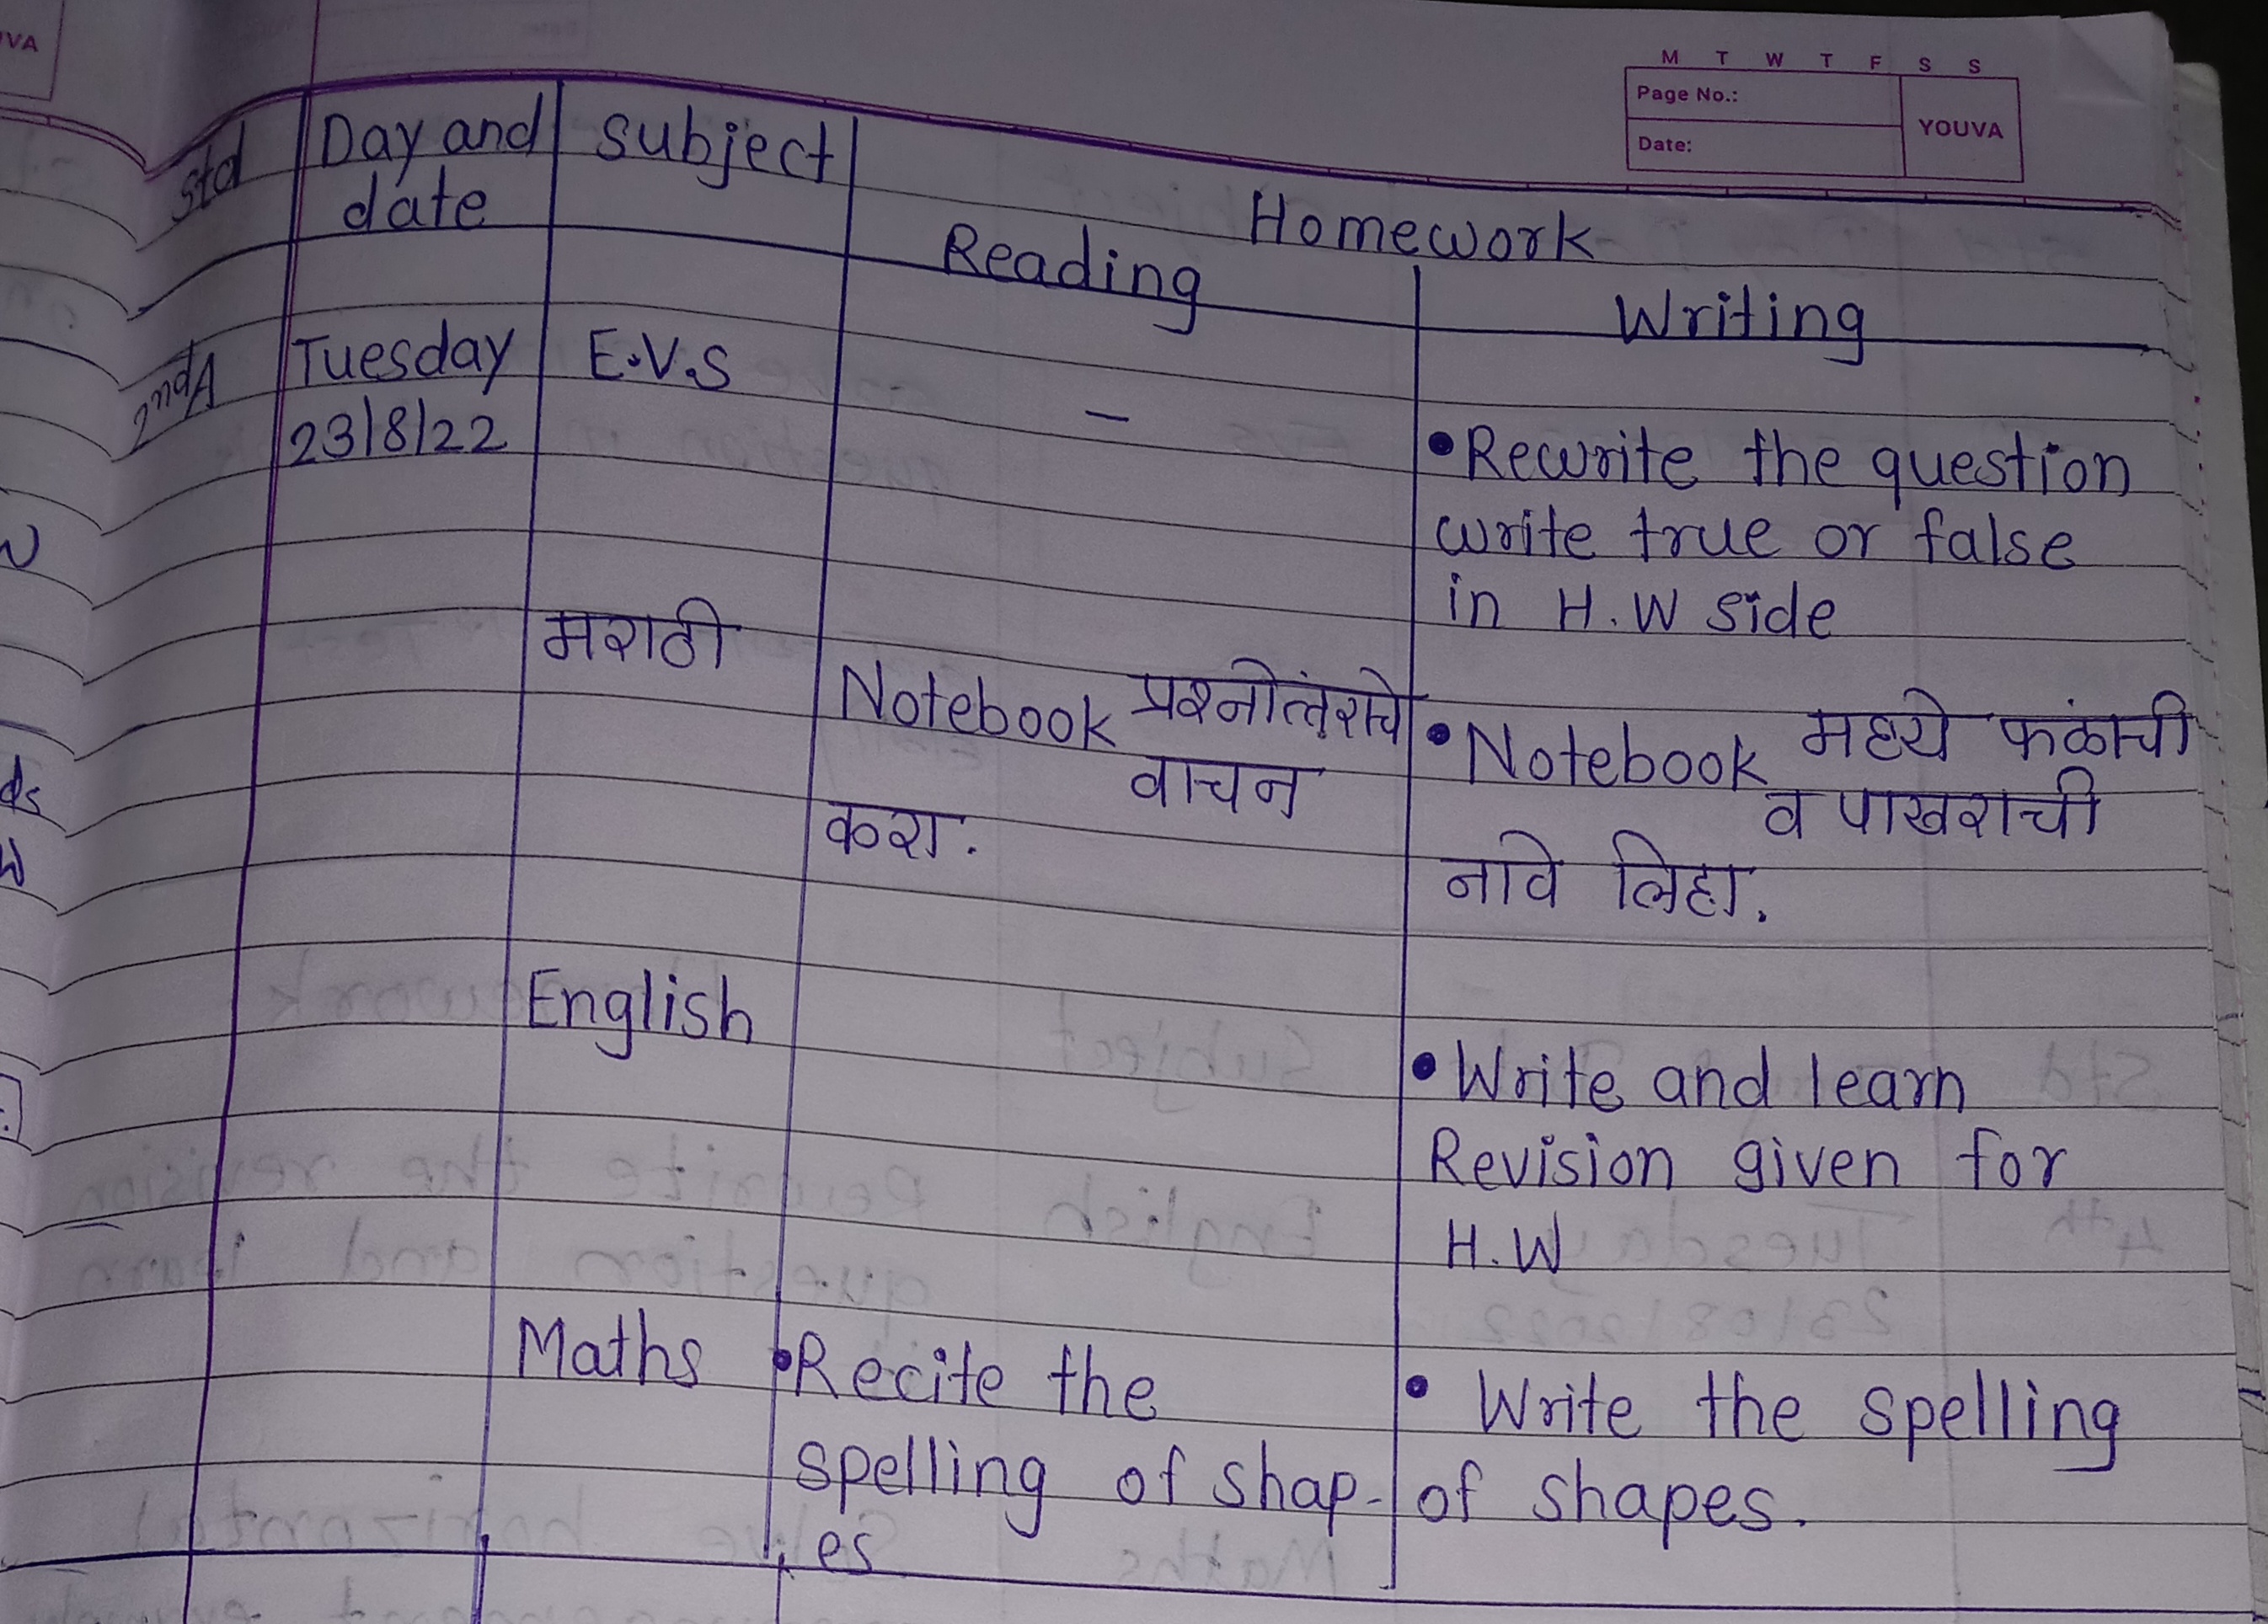 UVA
M T W T F S S
Page No.:
YOUVA
Date:
Std
Day and
date
Subject
Homework
Reading
Writing
2nd A
Tuesday
23/8/22
E.V.S
-
• Rewrite the question
write true or false
in H.W side
मराठी
Notebook प्रश्नोत्तंराचे
वाचन
करा.
• Notebook मध्ये फळांची
व पाखराची
नावे लिहा.
English
• Write and learn
Revision given for
H.W
Maths
• Recite the
spelling of shap-
es
• Write the spelling
of shapes.